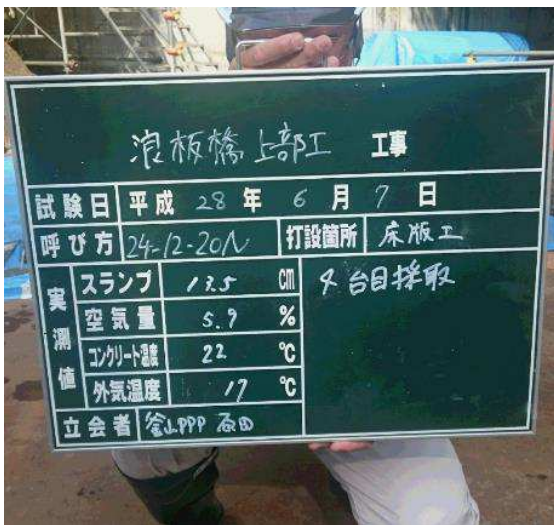 浪板橋上部工 工事
試験日 平成 28 年 6 月 7 日
呼び方 24-12-20N 打設箇所 床版工
実測値
スランプ 13.5 cm
4台目採取
空気量 5.9 %
コンクリート温度 22 ℃
外気温度 17 ℃
立会者 釜山PPP 石田